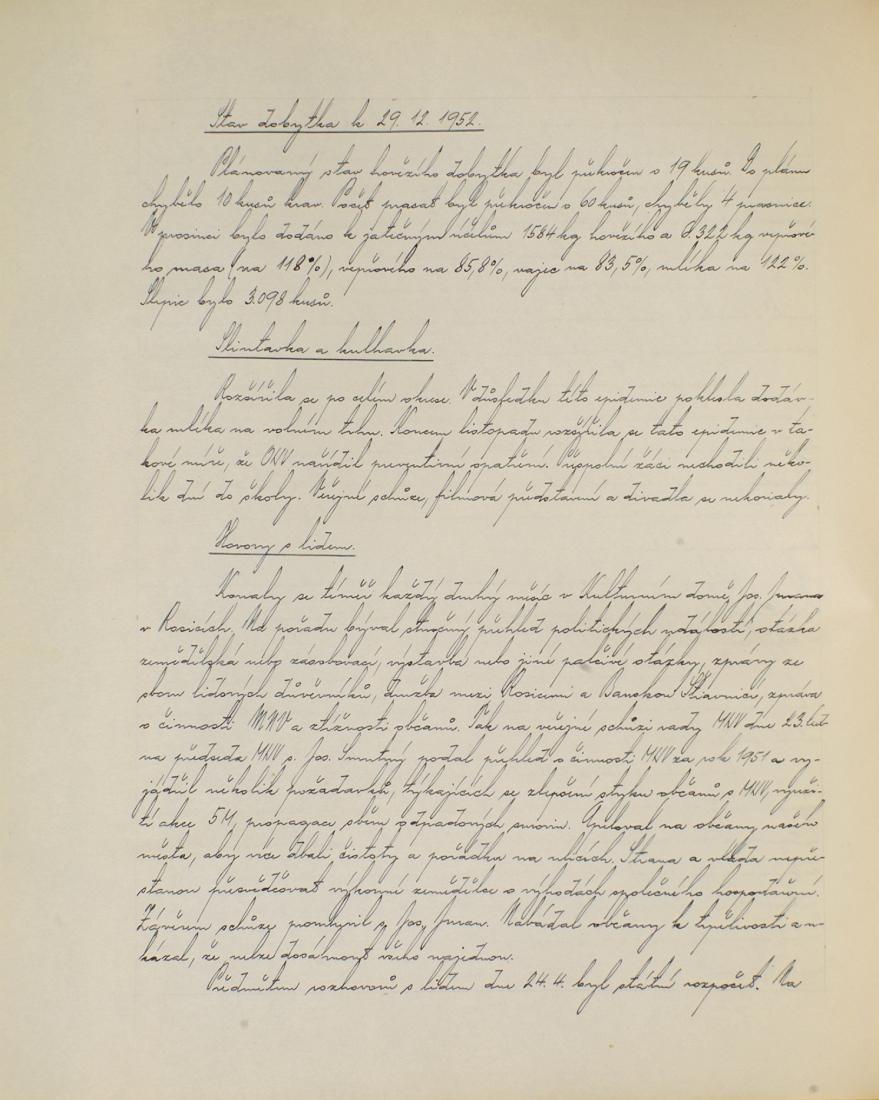 Stav dobytka k 29. 12. 1952.
Plánovaný stav hovězího dobytka byl překročen o 19 kusů. Do plánu
chybělo 10 kusů krav. Počet prasat byl překročen o 60 kusů, chyběly 4 prasnice.
V prosinci bylo dodáno k jatečným účelům 1584 kg hovězího a 8.322 kg vepřové-
ho masa (na 118%), vepřového na 85,8%, vajec na 83,5%, mléka na 122%.
Slepic bylo 3.098 kusů.
Slintavka a kulhavka.
Rozšířila se po celém okrese. V důsledku této epidemie poklesla dodáv-
ka mléka na volném trhu. Koncem listopadu rozšířila se tato epidemie v ta-
kové míře, že ONV nařídil preventivní opatření. Přespolní žáci nechodili něko-
lik dní do školy. Veřejné schůze, filmová představení a divadla se nekonaly.
Hovory s lidem.
Konaly se téměř každý druhý měsíc v Kulturním domě Jos. Jurana
v Rosicích. Na pořadu býval stručný přehled politických událostí, otázka
zemědělská nebo zásobovací, výstavba nebo jiné palčivé otázky, zprávy ze
sboru lidových důvěrníků, družba mezi Rosicemi a Banskou Štiavnicí, zpráva
o činnosti MNV a stížnosti občanů. Tak na veřejné schůzi rady MNV dne 23. led-
na předseda MNV s. Jos. Smutný podal přehled o činnosti MNV za rok 1951 a vy-
jádřil několik požadavků, týkajících se zlepšení styku občanů s MNV, využi-
tí akce 5M, propagace sběru odpadových surovin. Apeloval na občany našeho
města, aby více dbali čistoty a pořádku na ulicích. Strana a vláda nepře-
stanou přesvědčovat výkonné zemědělce o výhodách společného hospodaření.
Závěrem schůze promluvil s. Jos. Juran. Nabádal občany k trpělivosti a u-
kázal, že nelze dosáhnout všeho najednou.
Předmětem rozhovorů s lidem dne 24. 4. byl státní rozpočet. Na